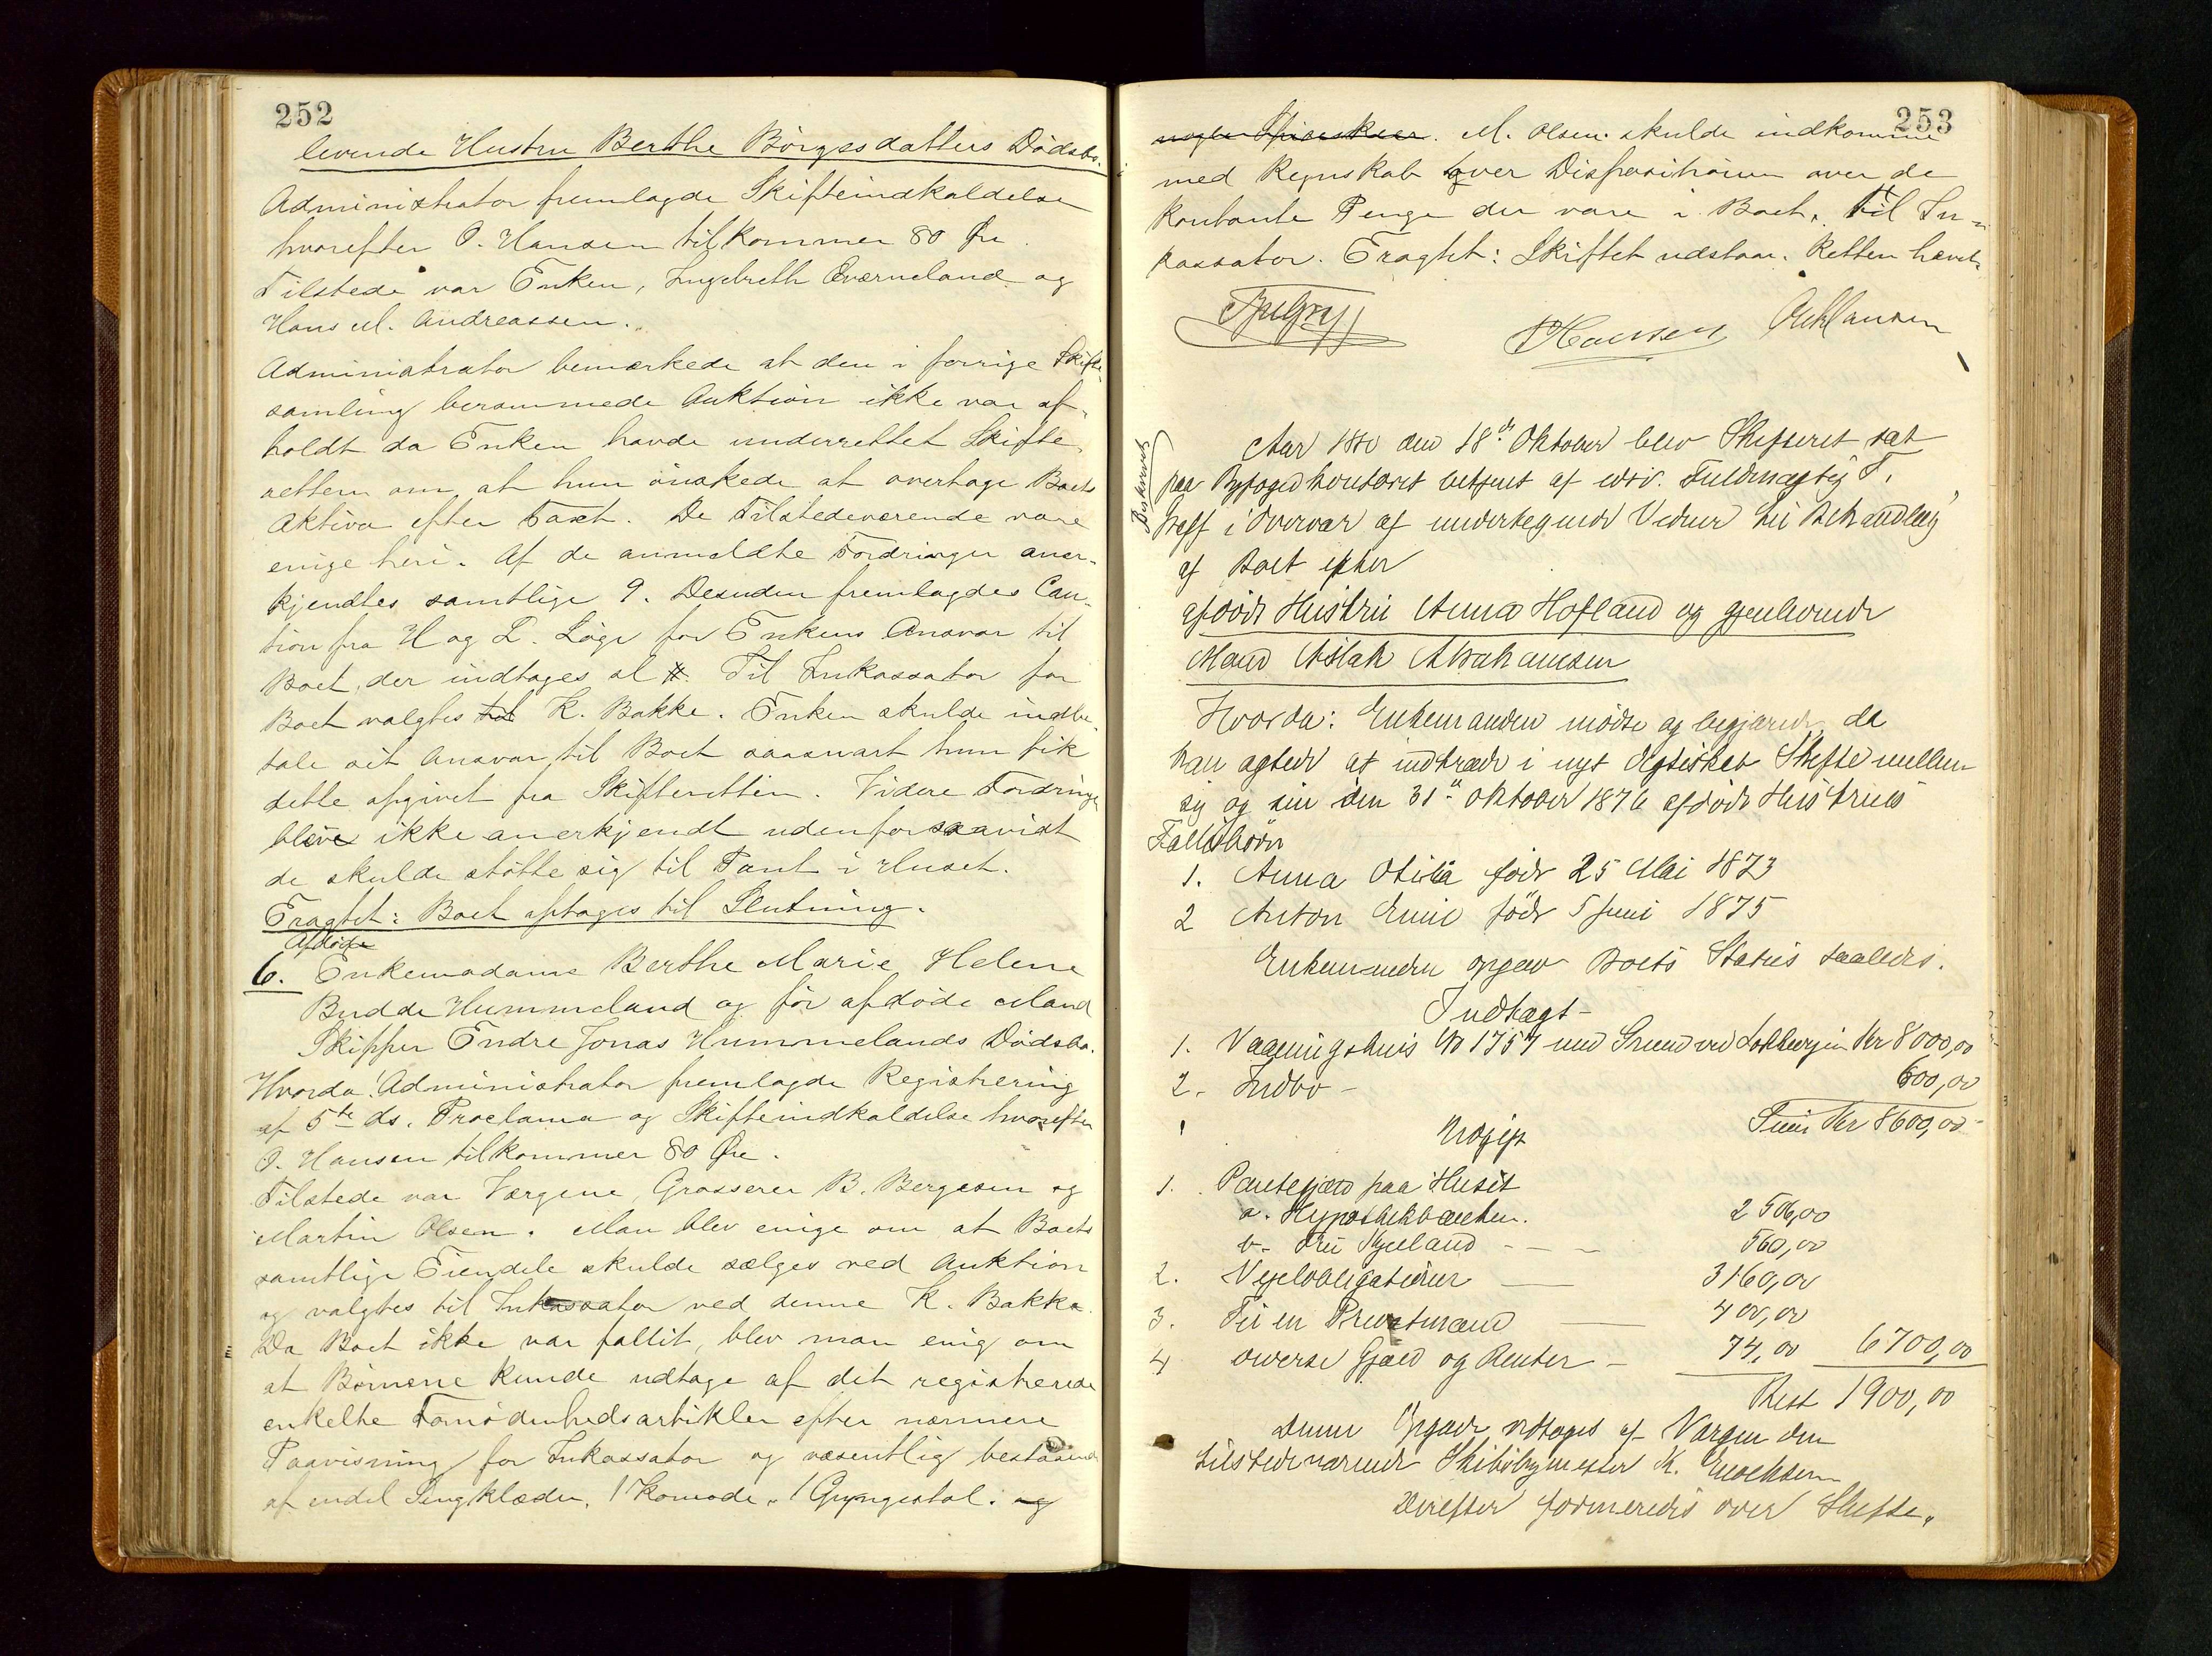 252
levende Hustru Berthe Börgesdatters Dödsbo.
Administrator fremlagde Skifteindkaldelse
hvorefter O. Hansen tilkommer 80 Öre.
Tilstede var Enken, Ingebreth Qværneland og
Hans M. Andreassen.
Administrator bemærkede at den i forrige Skifte-
samling berammede Auktion ikke var af-
holdt da Enken havde underrettet Skifte-
retten om at hun önskede at overtage Boets
Aktiva efter Taxt. De Tilstedeværende vare
enige heri. Af de anmeldte Fordringer aner-
kjendtes samtlige 9. Desuden fremlagdes Cau-
tion fra H og L. Löge for Enkens Ansvar til
Boet, der indtages al . Til Inkassator for
Boet valgtes til K. Bakke. Enken skulde indbe-
tale sit Ansvar til Boet saasnart hun fik
dette opgivet fra Skifteretten. Videre Fordringer
bleve ikke anerkjendt udenfor saavidt
de skulde stötte sig til Pant i Huset.
Eragtet: Boet optages til Slutning.
Afdöde
6. Enkemadame Berthe Marie Helene
Budde Hummeland og för afdöde Mand
Skipper Endre Jonas Hummelands Dödsbo.
Hvorda! Administrator fremlagde Registrering
af 5te ds. Proclama og Skifteindkaldelse hvorefter
O. Hansen tilkommer 80 Öre.
Tilstede var Værgene, Grosserer B. Bergesen og
Martin Olsen. Man blev enige om at Boets
samtlige Eiendele skulde sælges ved Auktion
og valgtes til Inkassator ved denne K. Bakke.
Da Boet ikke var fallit, blev man enig om
at Börnene kunde udtage af det registrerede
enkelte Fornödenhedsartikler efter nærmere
Paavisning for Inkassator og væsentlig bestaaende
af endel Sengklæder, 1 Komode, 1 Gyngestol. og
253
nogle . M. Olsen skulde indkomme
med Regnskab over Dispositionen over de
kontante Penge der vare i Boet. til In-
kassator. Eragtet: Skiftet udstaar. Retten hævet.
Hansen
Beskrevet
Aar 1880 den 18de Oktober blev Skifteret sat
paa Byfogedkontoret betjent af edsv. Fuldmægtig F.
i Overvær af undertegnede Vidner til Behandling
af Boet efter
afdöde Hustru Anna Hofland og gjenlevende
Mand Aslak Abrahamsen
Hvorda: Enkemanden mödte og begjærede da
han agtede at indtræde i nyt Ægteskab Skifte mellem
sig og sin den 31te Oktober 1876 afdöde Hustrues
Fællesbörn
1. Anna Otilia född 25 Mai 1873
2 Anton Emil född 5 Juni 1875
Enkemanden opgav Boets Status saaledes.
Indtægt -
1. Vaaningshus No 1757 med Grund ved Kr 8000,00
2. Indbo - 600,00
Sum Kr 8600,00
Udgift
1. Pantegjæld paa Huset
a. Hypothekbanken. 2 506,00
b. Fru Kjelland - - - 560,00
2. Vexelobligationer 3160,00
3. Til en Privatmand 400,00
4 Diverse Gjæld og Renter - 74,00 6700,00
Rest 1900,00
Denne Opgave vedtoges af Værgen den
tilstedeværende Skibsbygmester K. Enochsen
Derefter formeredes over Skifte.